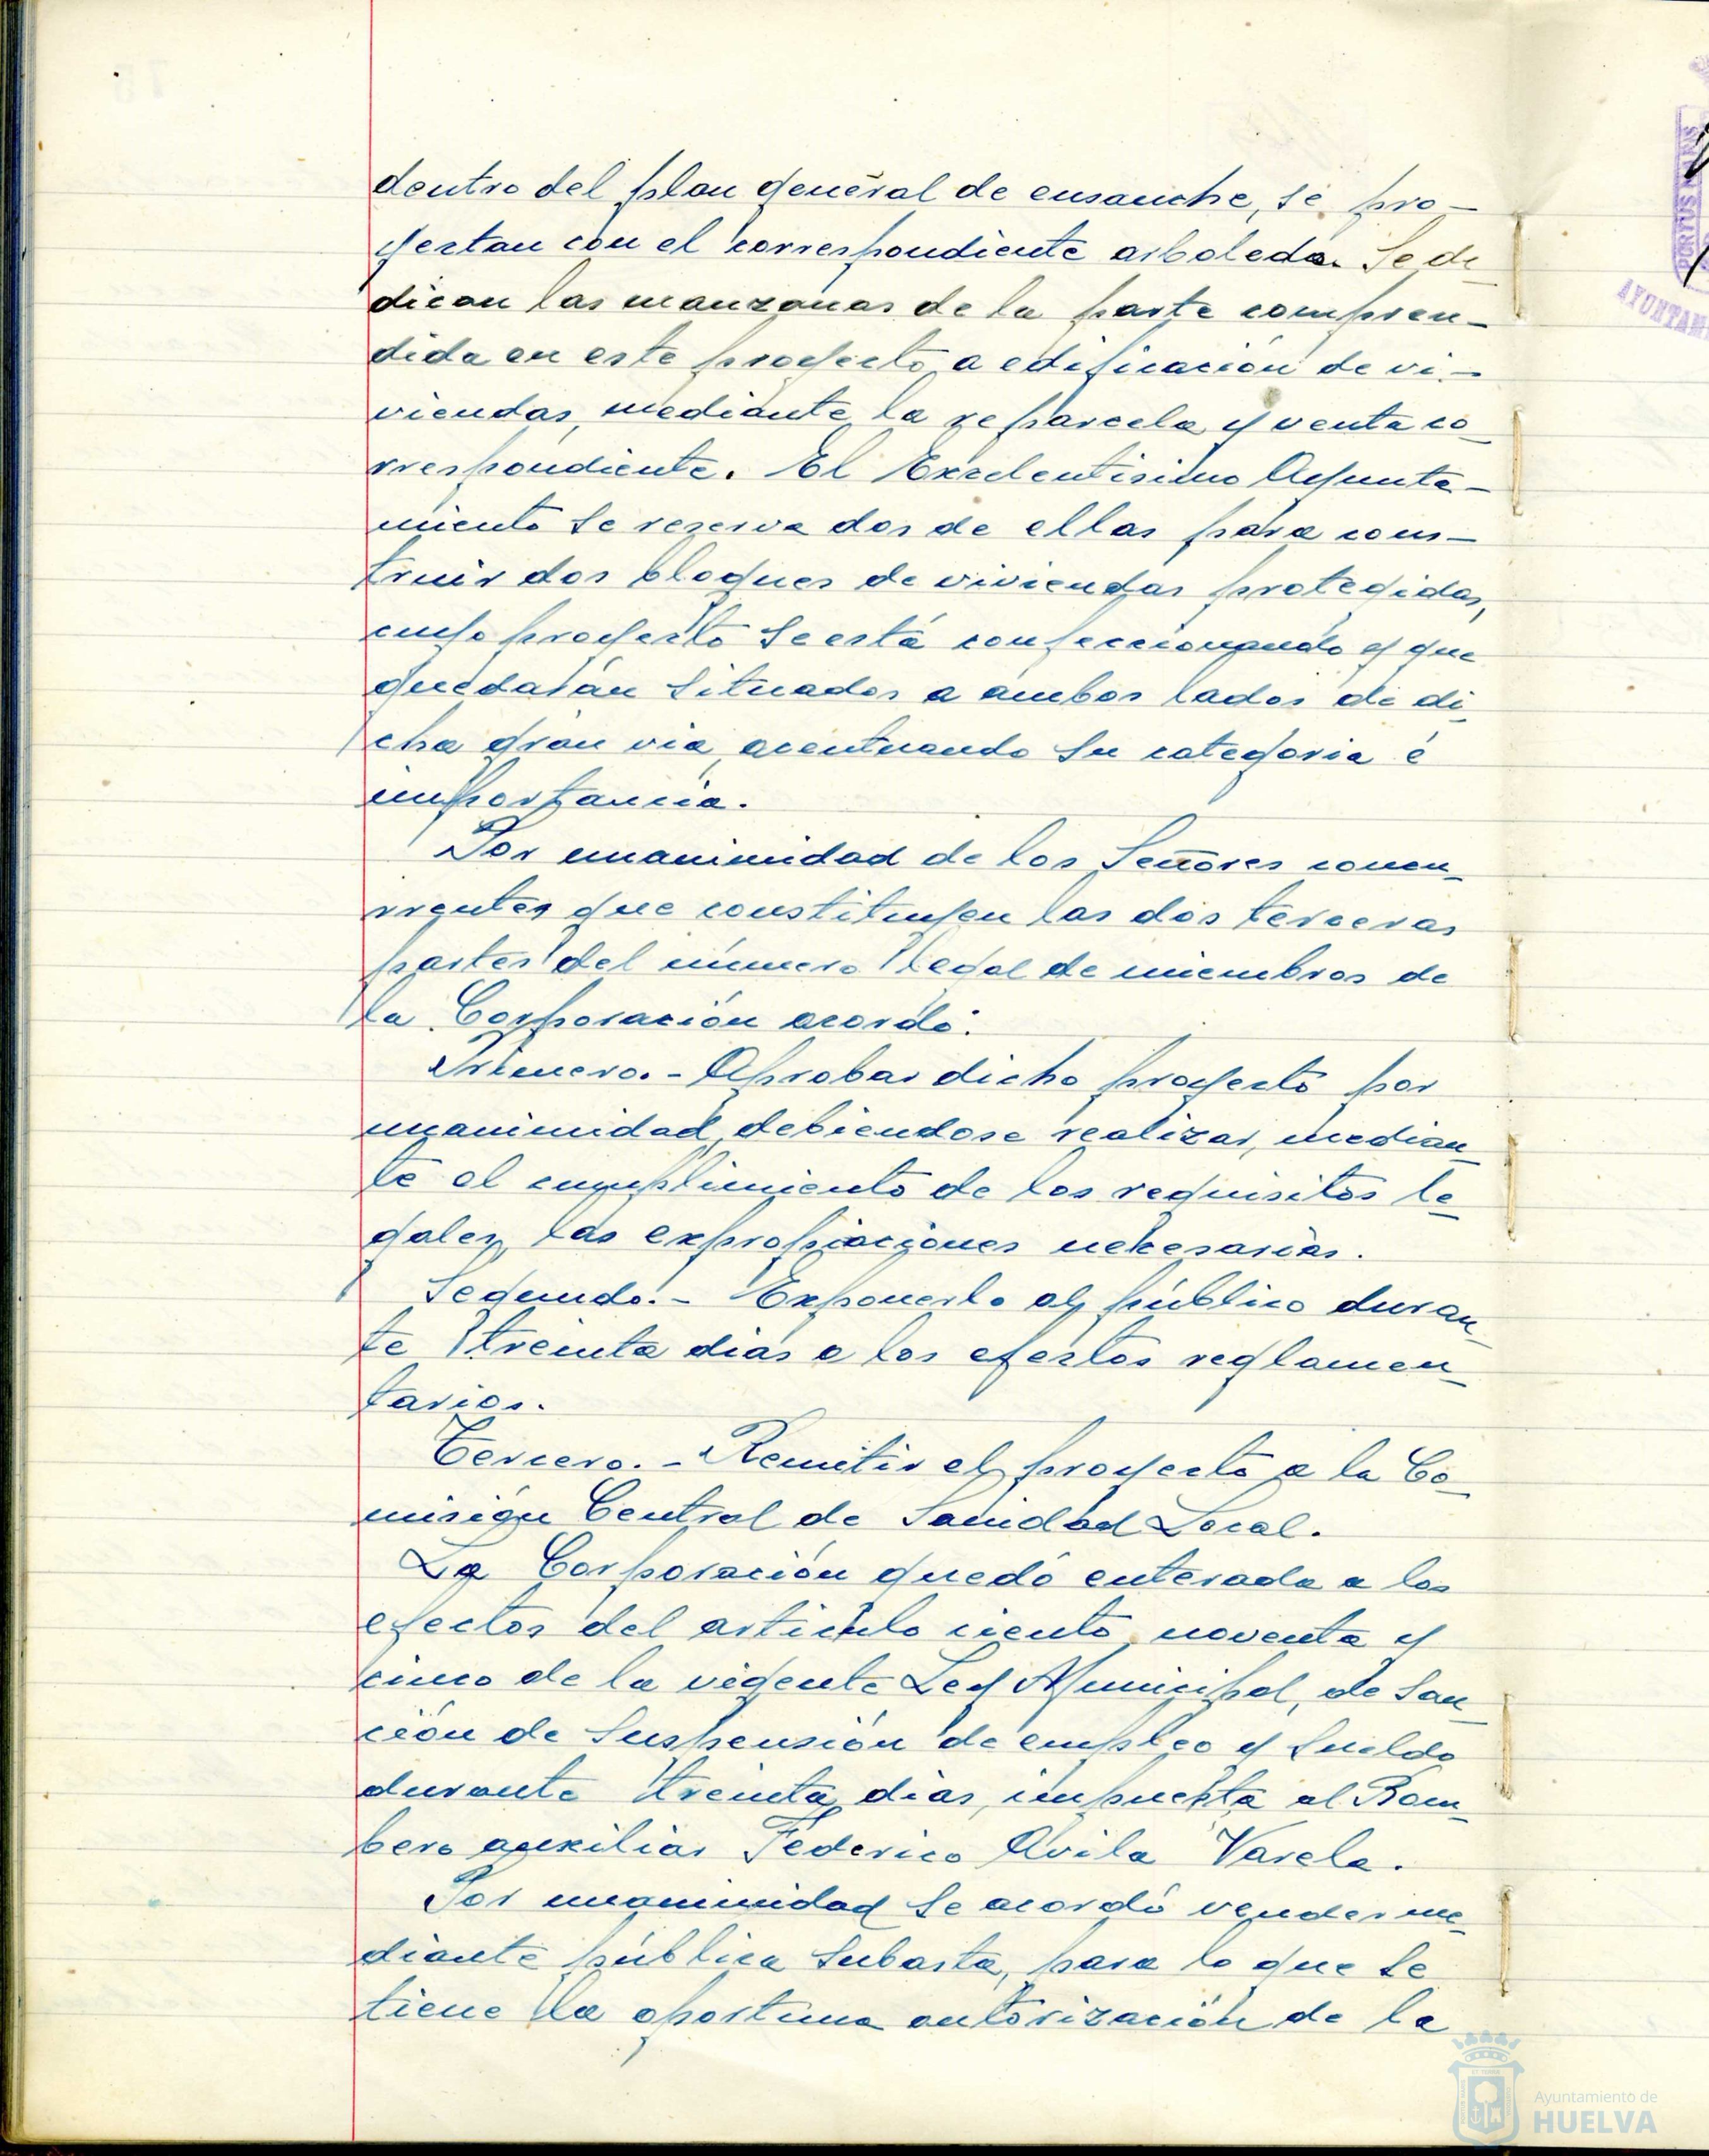 dentro del plan general de ensanche, se pro-
yectan con el correspondiente arboleda. Se de-
dican las manzanas de la parte compren-
dida en este proyecto a edificación de vi-
viendas, mediante la reparcela y venta co-
rrespondiente. El Excelentísimo Ayunta-
miento se reserva dos de ellas para cons-
truir dos bloques de viviendas protegidas,
cuyo proyecto se está confeccionando y que
quedarán situados a ambos lados de di-
cha gran via, acentuando su categoria é
importancia.
Por unanimidad de los Señores concu-
rrentes que constituyen las dos terceras
partes del número legal de miembros de
la Corporación acordó:
Primero.- Aprobar dicho proyecto por
unanimidad, debiendose realizar, median-
te el cumplimiento de los requisitos le-
gales, las expropiaciones necesarias.
Segundo.- Exponerlo al público duran-
te treinta dias a los efectos reglamen-
tarios.
Tercero.- Remitir el proyecto a la Co-
misión Central de Sanidad Local.
La Corporación quedó enterada a los
efectos del articulo ciento noventa y
cinco de la vigente Ley Municipal, de San-
ción de Suspensión de empleo y Sueldo
durante treinta dias, impuesta al Bom-
bero auxiliar Federico Avila Varela.
Por unanimidad se acordó vender me-
diante pública Subasta, para lo que se
tiene la oportuna autorización de la
PORTUS MARIS
AYUNTAM
Ayuntamiento de
HUELVA